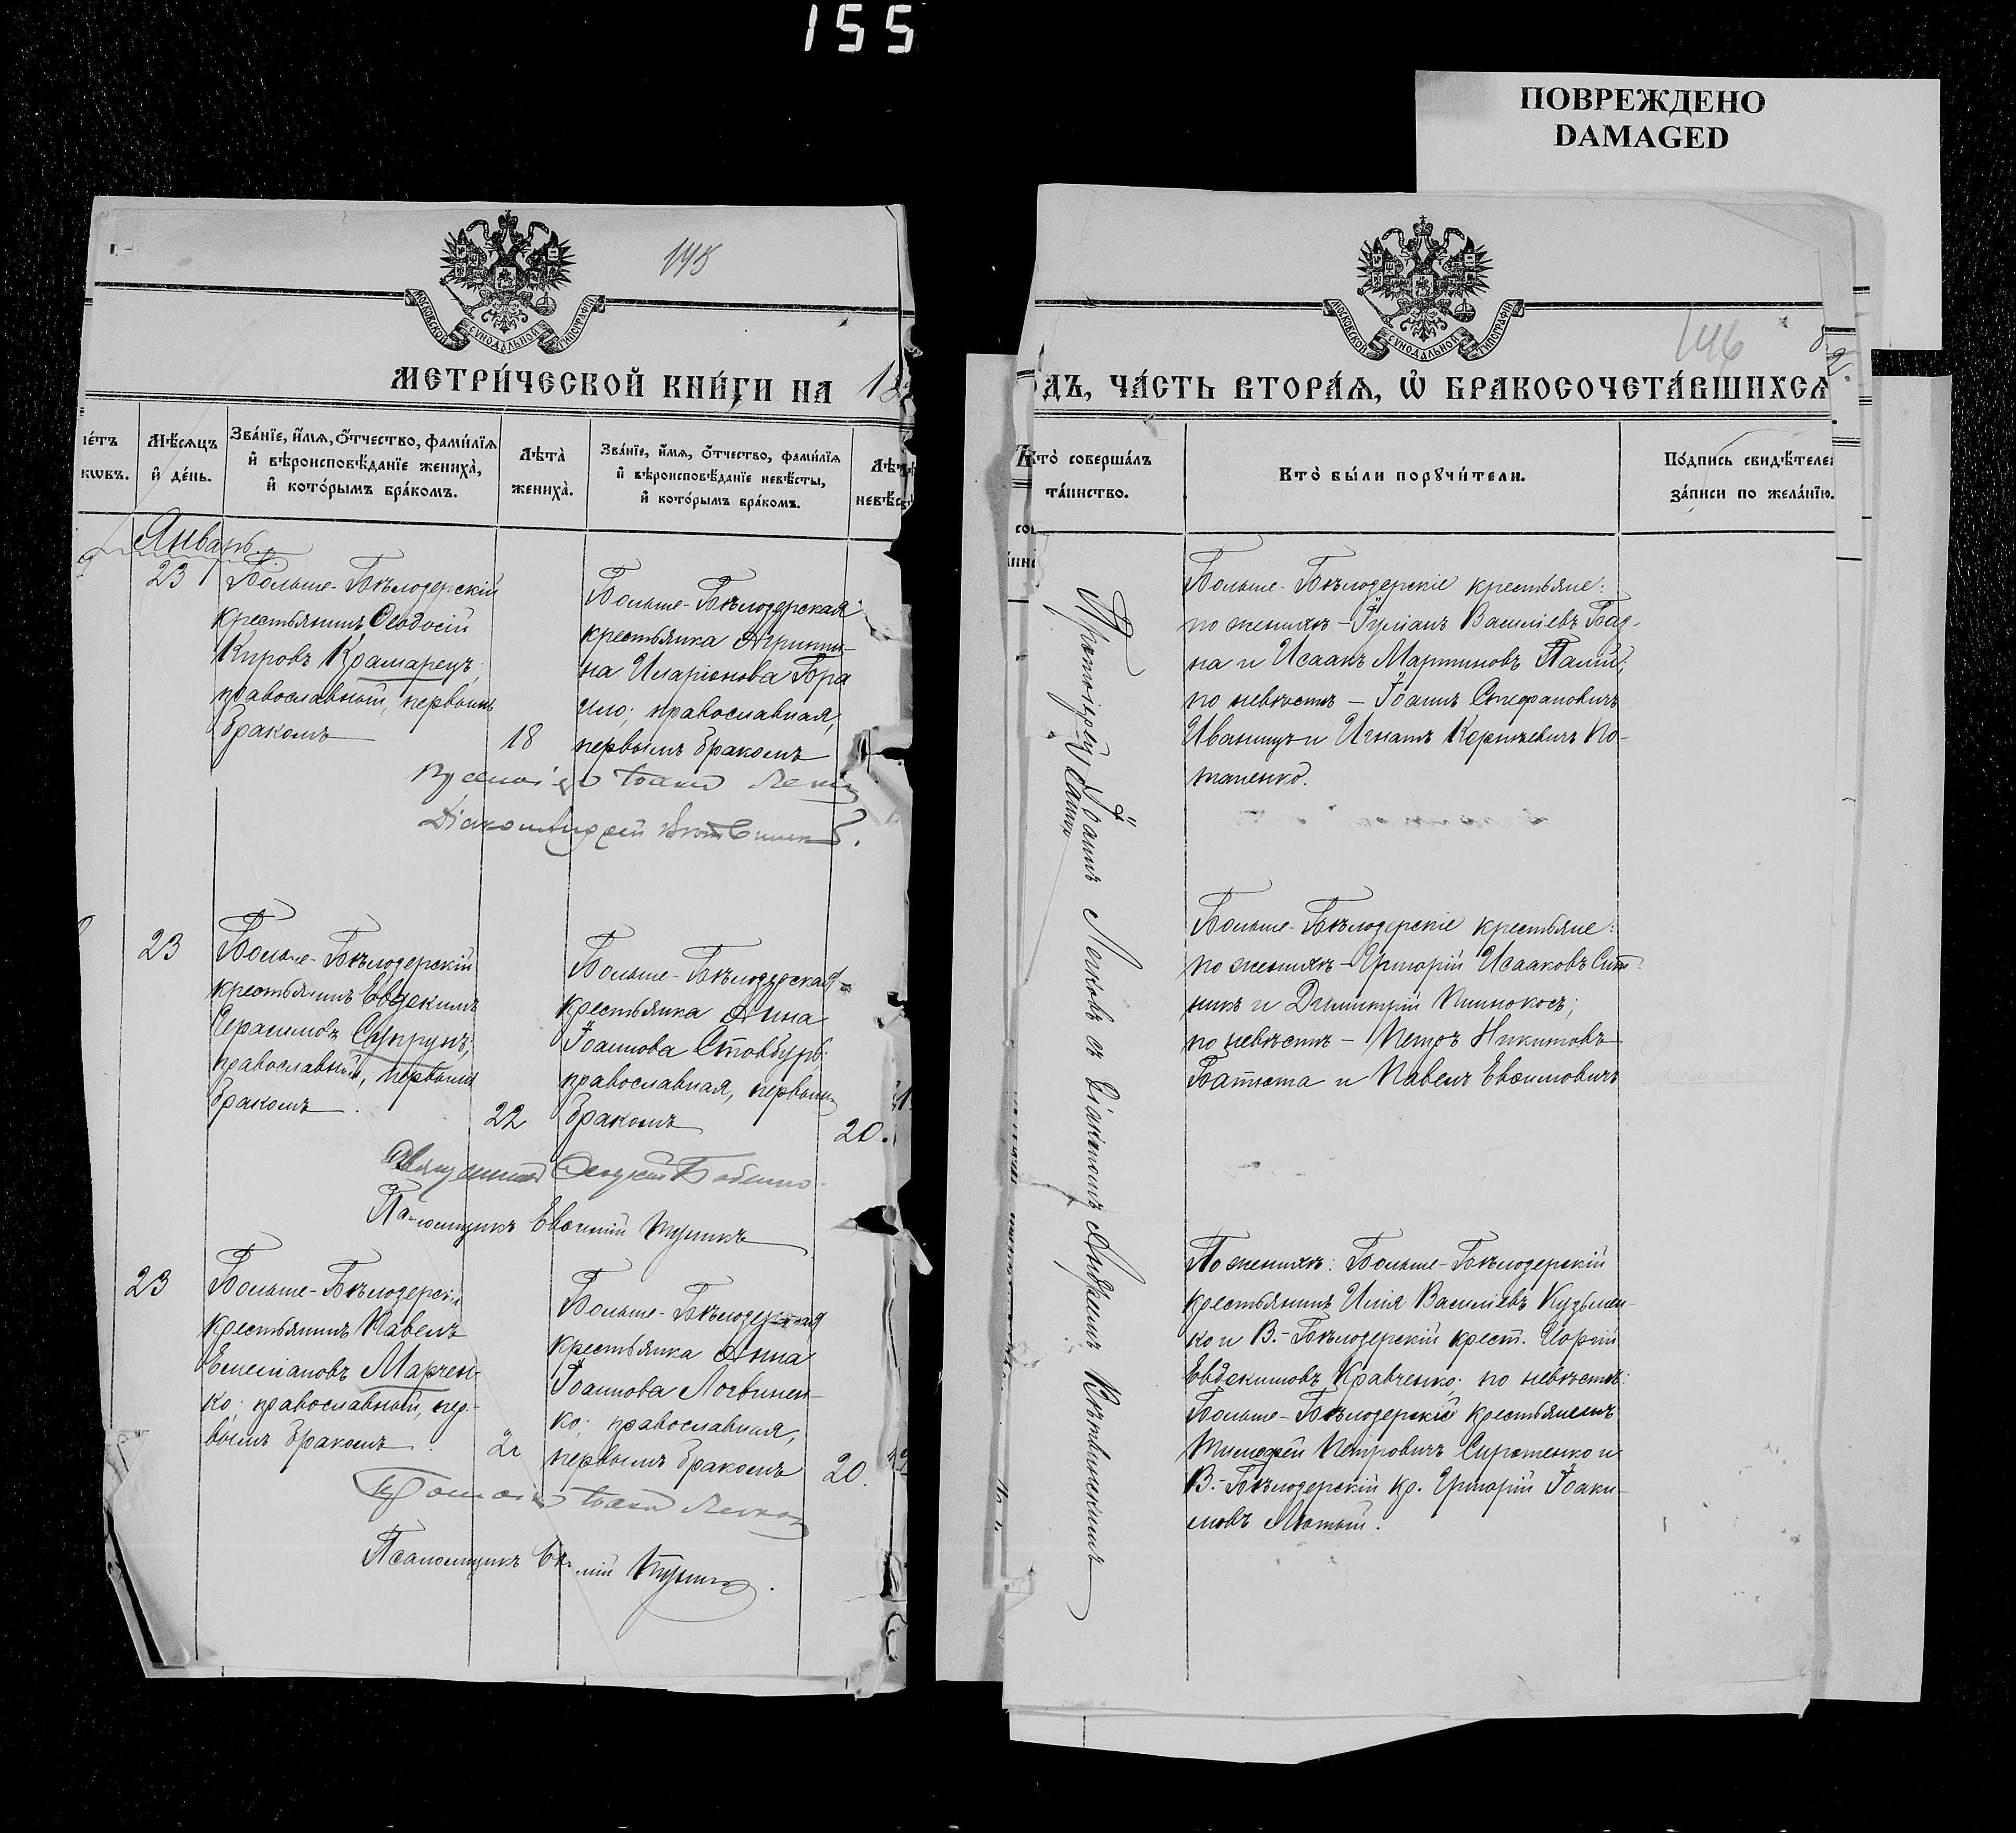 155
ПОВРЕЖДЕНО
DAMAGED
145
МОСКОВСКОЙ СѴНОДАЛЬНОЙ ТИПОГРАФІИ
МЕТРИ́ЧЕСКОЙ КНИ́ГИ НА 18
Мѣ́сяцъ и҆ де́нь.
Зва́нїе, и҆́мѧ, ѻ҆́тчество, фами́лїѧ и҆ вѣроисповѣ́данїе жениха̀, и҆ кото́рымъ бра́комъ.
Лѣ́та жениха̀.
Зва́нїе, и҆́мѧ, ѻ҆́тчество, фами́лїѧ и҆ вѣроисповѣ́данїе невѣ́сты, и҆ кото́рымъ бра́комъ.
Январь.
23
Больше-Бѣлозерскій
крестьянинъ Ѳеодосій
Кировъ Крамарецъ;
православный, первымъ
бракомъ
18
Больше-Бѣлозерская
крестьянка Агрипи-
на Иларіонова
православная,
первымъ бракомъ
23
Больше-Бѣлозерскій
крестьянинъ Евдокимъ
Герасимовъ Супрунъ;
православный, первымъ
бракомъ
22
Больше-Бѣлозерская
крестьянка Анна
Іоаннова Стовбуръ;
православная, первымъ
бракомъ
20.
Псаломщикъ Евѳимій
23
Больше-Бѣлозерскій
крестьянинъ Павелъ
Емеліановъ Марчен-
ко; православный, пер-
вымъ бракомъ
Больше-Бѣлозерская
крестьянка Анна
Іоаннова Логвинен-
ко; православная,
первымъ бракомъ
20.
Псаломщикъ
146
МОСКОВСКОЙ СѴНОДАЛЬНОЙ ТИПОГРАФІИ
ОДЪ, ЧА́СТЬ ВТОРА́Ѧ, Ѡ҆ БРАКОСОЧЕТА́ВШИХСѦ
Кто̀ соверша́лъ та́инство.
Кто̀ бы́ли порꙋчи́тели.
По́дпись свидѣ́теле за́писи по жела́нїю.
Протоіерей Іоаннъ Лотковъ съ Діакономъ Андреемъ
Больше-Бѣлозерскіе крестьяне:
по женихѣ - Гуліанъ Василіевъ
на и Исаакъ Мартиновъ Палій;
по невѣстѣ - Іоаннъ Стефановичъ
Иваницъ и Игнатъ Корніевичъ По-
тапенко.
Больше-Бѣлозерскіе крестьяне:
по женихѣ - Григорій Исааковъ Сит-
никъ и Димитрій
по невѣстѣ - Петръ Никитовъ
Батюта и Павелъ Евѳимовичъ
По женихѣ: Больше-Бѣлозерскій
крестьянинъ Илія Василіевъ Кузьмен-
ко и В.-Бѣлозерскій крест.
Евдокимовъ Кравченко; по невѣстѣ:
Больше-Бѣлозерскіе крестьянинъ
Тимоѳей Петровичъ Сиротенко и
В.-Бѣлозерскій кр. Григорій Іоаки-
мовъ Лютый.